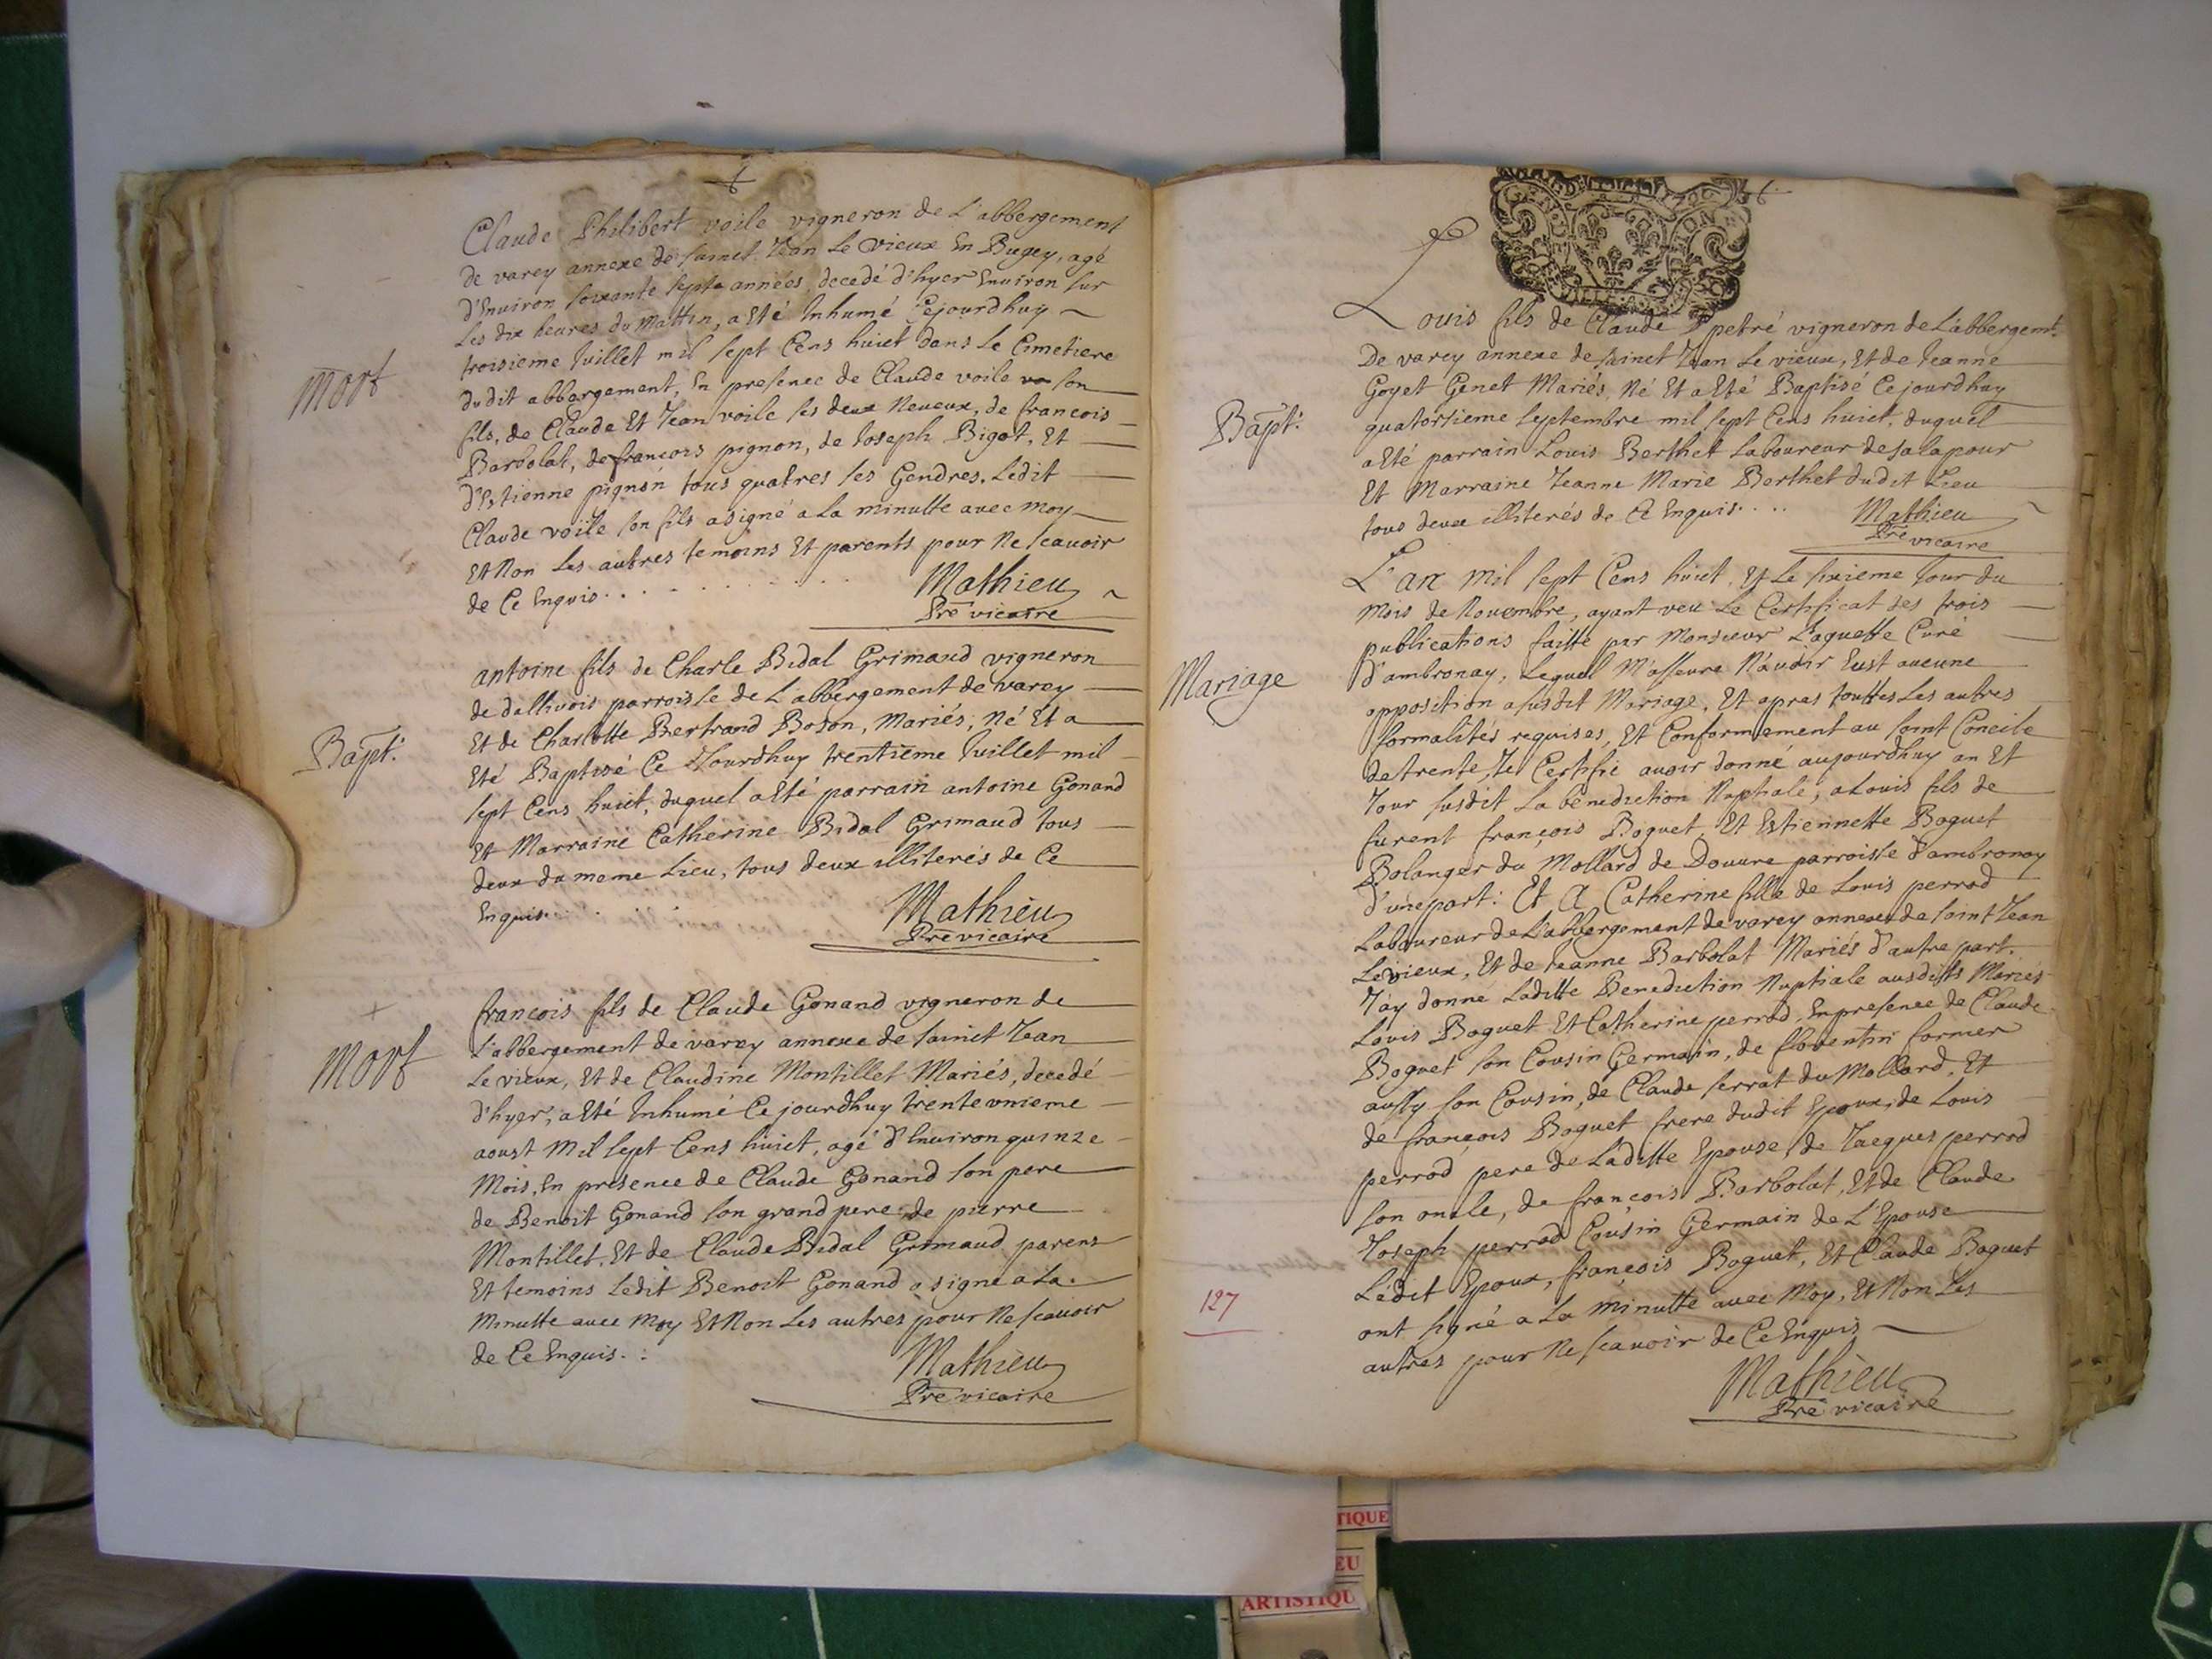 Mort
Claude Philibert voile vigneron de L'abbergement
de varey annexe de sainct Jean Le vieux En Bugey, agé
d'Environ soixante sept années, decedé d'hyer Environ sur
Les dix heures du Mattin, a Eté Inhumé Cejourdhuy
troisieme Juillet mil sept Cens huict dans Le Cimetiere
dudit abbargement, En presence de Claude voile son
fils, de Claude Et Jean voile ses deux Neveux, de francois
Barbolat, de francois pignon, de Joseph Bigot, Et
d'Estienne pignon tous quatres ses Gendres, Ledit
Claude voile son fils a signé a La minutte avec moy
Et Non Les autres temoins Et parents pour Ne scavoir
de Ce Enquis
Mathieu
Pre vicaire
Bapt:
antoine fils de Charle Bidal Grimaud vigneron
de dalhvois parroisse de L'abbergement de varey
Et de Charlotte Bertrand Bozon, Mariés, Né Et a
Eté Baptisé Ce Jourdhuy trentieme Juillet mil
sept Cens huict, duquel a Eté parrain antoine Gonand
Et Marraine Catherine Bidal Grimaud tous
deux du meme Lieu, tous deux illiterés de Ce
Enquis
Mathieu
Pre vicaire
Mort
francois fils de Claude Gonand vigneron de
L'abbergement de varey annexe de sainct Jean
Le vieux, Et de Claudine Montillet Mariés, decedé
d'hyer, a Eté Inhumé Ce jourdhuy trente vnieme
aoust Mil sept Cens huict, agé d'Environ quinze
Mois, En presence de Claude Gonand son pere
de Benoit Gonand son grand pere, de pierre
Montillet, Et de Claude Bidal Grimaud parens
Et temoins Ledit Benoit Gonand a signe a La
Minutte avec Moy Et Non Les autres pour Ne scavoir
de Ce Enquis
Mathieu
Pre vicaire
Bapt:
Louis fils de Claude petré vigneron de L'abbergemt.
De varey annexe de sainct Jean Le vieux, Et de Jeanne
Goyet Genet Mariés, Né Et a Eté Baptisé Ce jourdhuy
quatorzieme septembre mil sept Cens huict, duquel
a Eté parrain Louis Berthet Laboureur de salapour
Et Marraine Jeanne Marie Berthet dudit Lieu
tous deux illiterés de Ce Enquis
Mathieu
Pre vicaire
Mariage
L'an mil sept Cens huict, Et Le sixieme Jour du
Mois de Novembre, ayant veu Le Certificat des trois
publications faitte par Monsieur Paquette Curé
d'ambronay, Lequel M'asseure N'avoir Eust aucune
opposition a susdit Mariage, Et apres touttes Les autres
formalités requises, Et Conformement au saint Concile
de trente, Je Certifie avoir donné aujourdhuy an Et
Jour susdit La benediction Nuptiale, a Louis fils de
furent françois Boguet, Et Estiennette Boguet
Bolanger du Mollard de Douvre parroisse d'ambronay
d'une part: Et A Catherine fille de Louis perrod
Laboureur de L'abbergement de varey annexe de saint Jean
Levieux, Et de Jeanne Barbolat Mariés d'autre part.
J'ay donné Laditte Benediction Nuptiale ausdits Mariés
Louis Boguet Et Catherine perrod, En presence de Claude
Boguet son Cousin Germain, de florentin former
aussy son Cousin, de Claude serrat du Mollard, Et
de françois Boguet frere dudit Epoux, de Louis
perrod pere de Laditte Epouse, de Jacques perrod
son oncle, de françois Barbolat, Et de Claude
Joseph perrod Cousin Germain de L'Epouse
Ledit Epoux, françois Boguet, Et Claude Boguet
ont signé a La Minutte avec Moy, Et Non Les
autres pour Ne scavoir de Ce Enquis
Mathieu
Pre vicaire
127
TIQUE
EU
ARTISTIQU